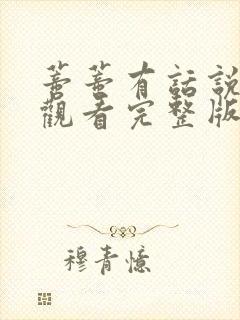 蕓蕓有話說
觀看完整版
穆青憶